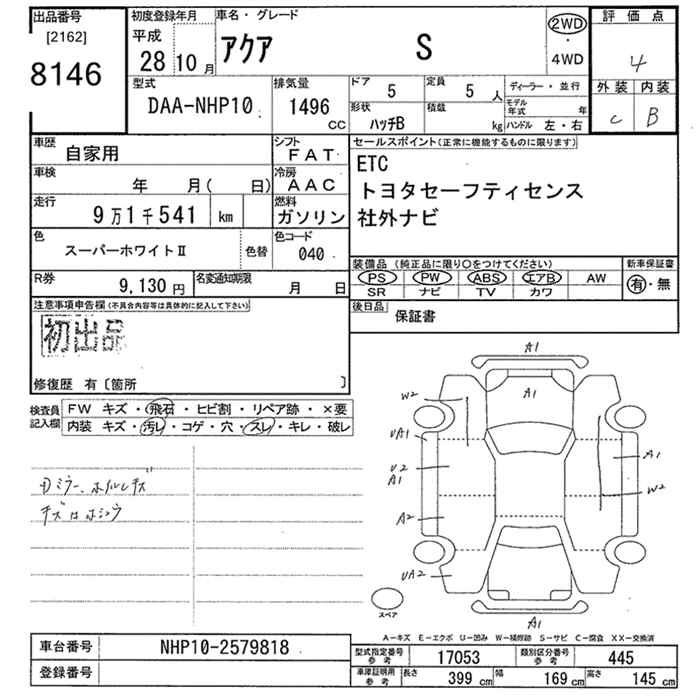 出品番号 初度登録年月 車名・グレード 評価点
[2162] 平成 アクア S 2WD ・ 4WD 4
8146 28 10 月
型式 排気量 ドア 5 定員 5 人 ディーラー・並行 外装 内装
DAA-NHP10 1496 CC 形状 ハッチB 積載 kg モデル年式 年 C B
ハンドル 左・右
車歴 自家用 シフト FAT セールスポイント(正常に機能するものに限ります)
車検 年 月( 日) 冷房 AAC ETC
走行 9万1千541 km 燃料 ガソリン トヨタセーフティセンス
社外ナビ
色 スーパーホワイトⅡ 色替 色コード 040
装備品(純正品に限り〇をつけてください) 新車保証書
R券 9,130 円 名変通知期限 月 日 PS PW ABS エアB AW 有・無
SR ナビ TV カワ
注意事項申告欄(不具合内容等は具体的に記入して下さい) 後日品 保証書
初出品
修復歴 有〔箇所 〕
検査員記入欄 FW キズ・飛石・ヒビ割・リペア跡・×要
内装 キズ・汚レ・コゲ・穴・スレ・キレ・破レ
ミラー、ホイルキズ
キズ
A1
A1
W2
UA1
A1
U2
A1
W2
A2
UA2
スペア
A1
A-キズ E-エクボ U-凹み W-補修跡 S-サビ C-腐食 XX-交換済
車台番号 NHP10-2579818 型式指定番号 参考 17053 類別区分番号 参考 445
登録番号 車庫証明用 参考 長さ 399 cm 幅 169 cm 高さ 145 cm